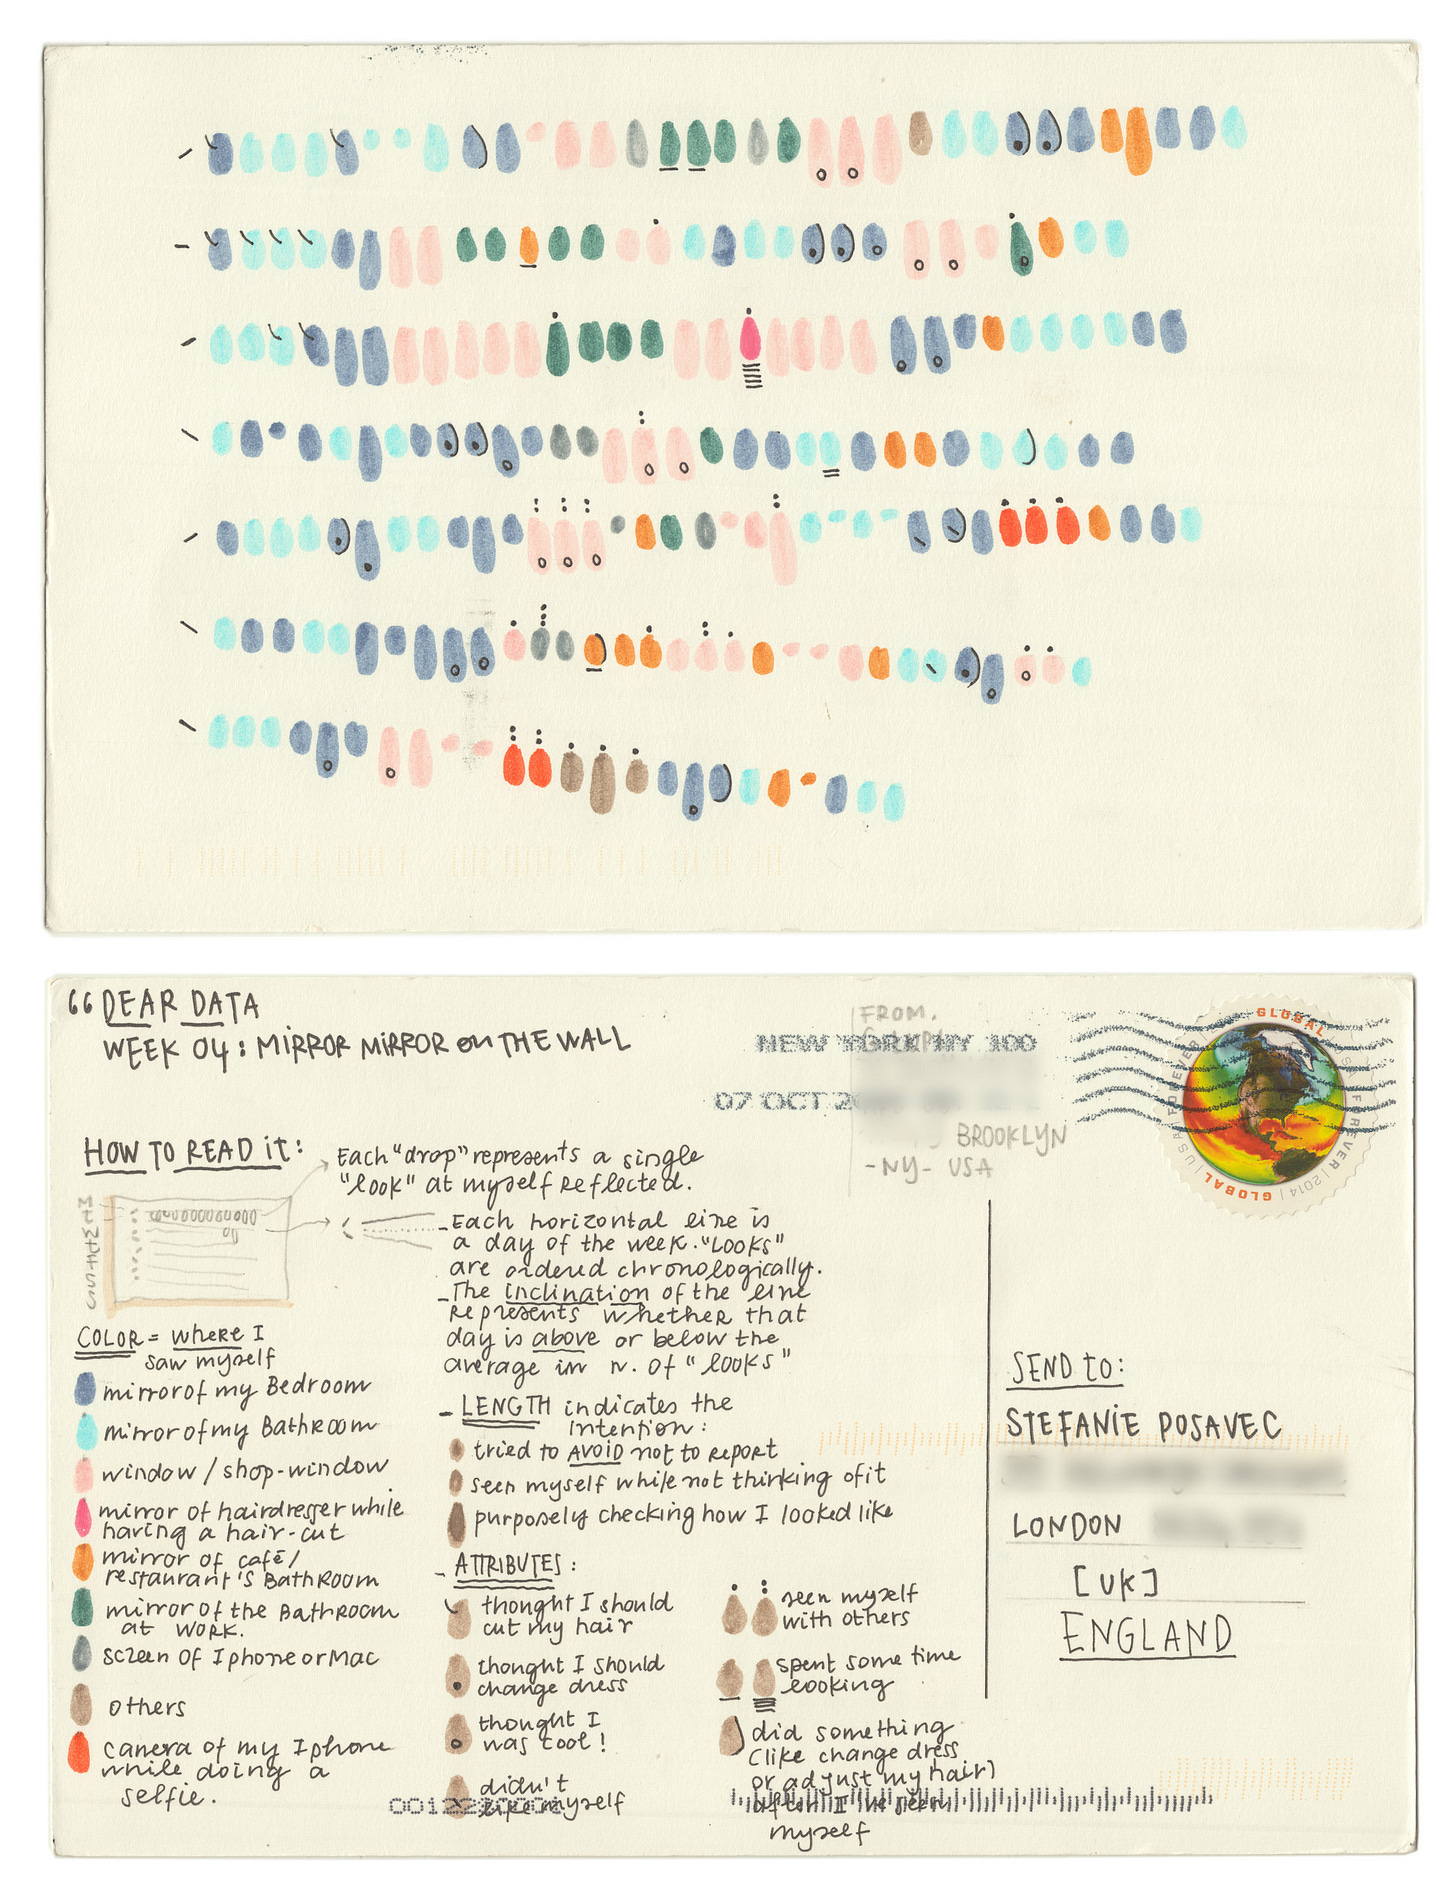 “DEAR DATA
WEEK 04: MIRROR MIRROR ON THE WALL
FROM.
NEW YORK NY 100
07 OCT 2
BROOKLYN
-NY- USA
GLOBAL
FOREVER
USA
GLOBAL
USA FOREVER
2014
HOW TO READ IT:
Each "drop" represents a single
"look" at myself reflected.
- Each horizontal line is
a day of the week. "LOOKS"
are ordered chronologically.
- The inclination of the line
represents whether that
day is above or below the
average in n. of "looks"
COLOR = where I
saw myself
mirror of my Bedroom
mirror of my Bathroom
window / shop-window
mirror of hairdresser while
having a hair-cut
mirror of café/
restaurant's BathRoom
mirror of the BathRoom
at WORK.
screen of Iphone or Mac
others
camera of my Iphone
while doing a
selfie.
- LENGTH indicates the
intention:
tried to AVOID not to report
seen myself while not thinking of it
purposely checking how I looked like
- ATTRIBUTES:
thought I should
cut my hair
thought I should
change dress
thought I
was cool!
didn't
like myself
seen myself
with others
spent some time
looking
did something
(like change dress
or adjust my hair)
after I've seen
myself
SEND to:
STEFANIE POSAVEC
LONDON
[UK]
ENGLAND